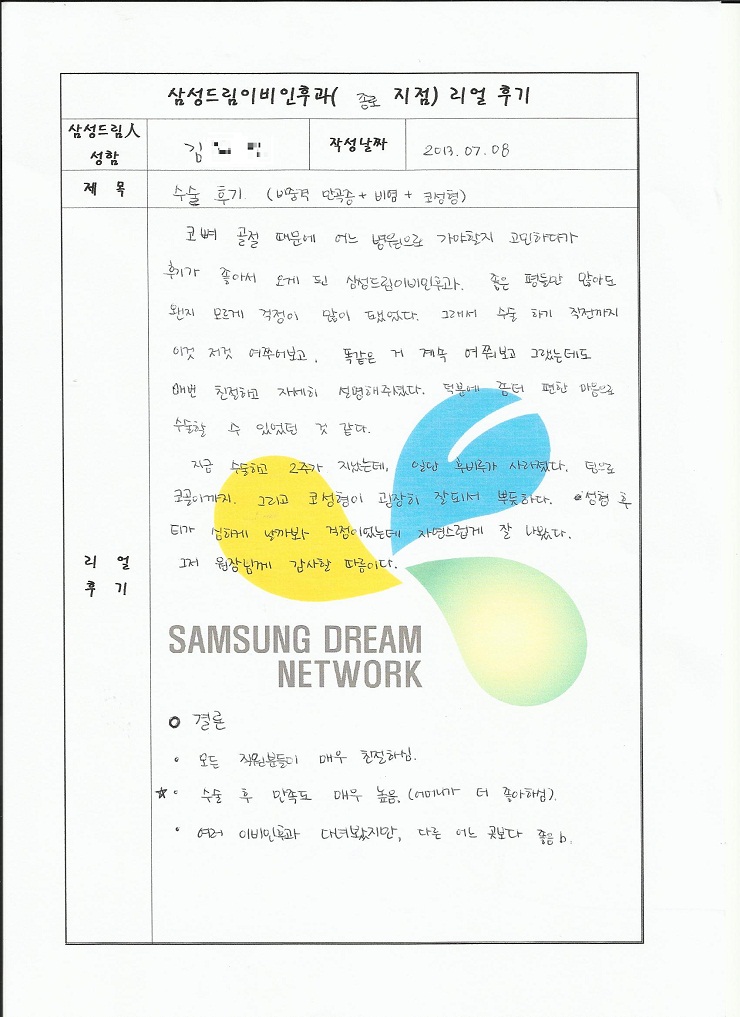 삼성드림이비인후과( 종로 지점) 리얼 후기
삼성드림人
성함
김
작성날짜
2013.07.08
제 목
수술 후기. (비중격 만곡증 + 비염 + 코성형)
코뼈 골절 때문에 어느 병원으로 가야할지 고민하다가
후기가 좋아서 오게 된 삼성드림이비인후과. 좋은 평들만 많아도
왠지 모르게 걱정이 많이 됐었다. 그래서 수술 하기 직전까지
이것 저것 여쭈어보고, 똑같은 거 계속 여쭤보고 그랬는데도
매번 친절하고 자세히 설명해주셨다. 덕분에 좀더 편한 마음으로
수술할 수 있었던 것 같다.
지금 수술하고 2주가 지났는데, 일단 후비루가 사라졌다. 덤으로
코골이까지. 그리고 코성형이 굉장히 잘되서 뿌듯하다. 성형 후
티가 심하게 날까봐 걱정이있는데 자연스럽게 잘 나왔다.
그저 원장님께 감사할 따름이다.
리 얼
후 기
SAMSUNG DREAM
NETWORK
결론
• 모든 직원분들이 매우 친절하심.
☆• 수술 후 만족도 매우 높음. (어머니가 더 좋아하심).
• 여러 이비인후과 다녀봤지만, 다른 어느 곳보다 좋음b.